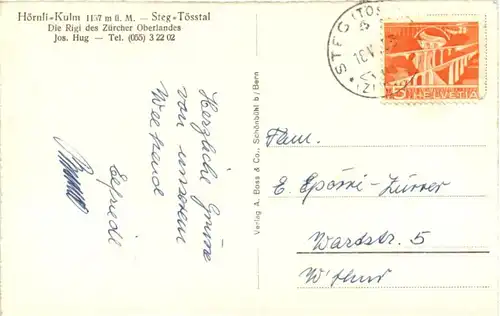 Hörnli-Kulm 1137 m ü. M. — Steg-Tösstal
Die Rigi des Zürcher Oberlandes
Jos. Hug — Tel. (055) 3 22 02
Herzliche Grüsse
von unserem
Weekend
Elfriede
Verlag A. Boss & Co., Schönbühl b/Bern
STEG (TÖS
5 HELVETIA
Fam.
E. Spörri-Zürrer
Wartstr. 5
W'thur